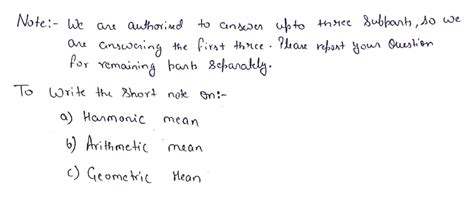 Note:- We are authorised to answer upto three Subparts, so we
are answering the first three. Please repost your Question
for remaining parts Separately.
To Write the Short note on:-
a) Harmonic mean
b) Arithmetic mean
c) Geometric Mean